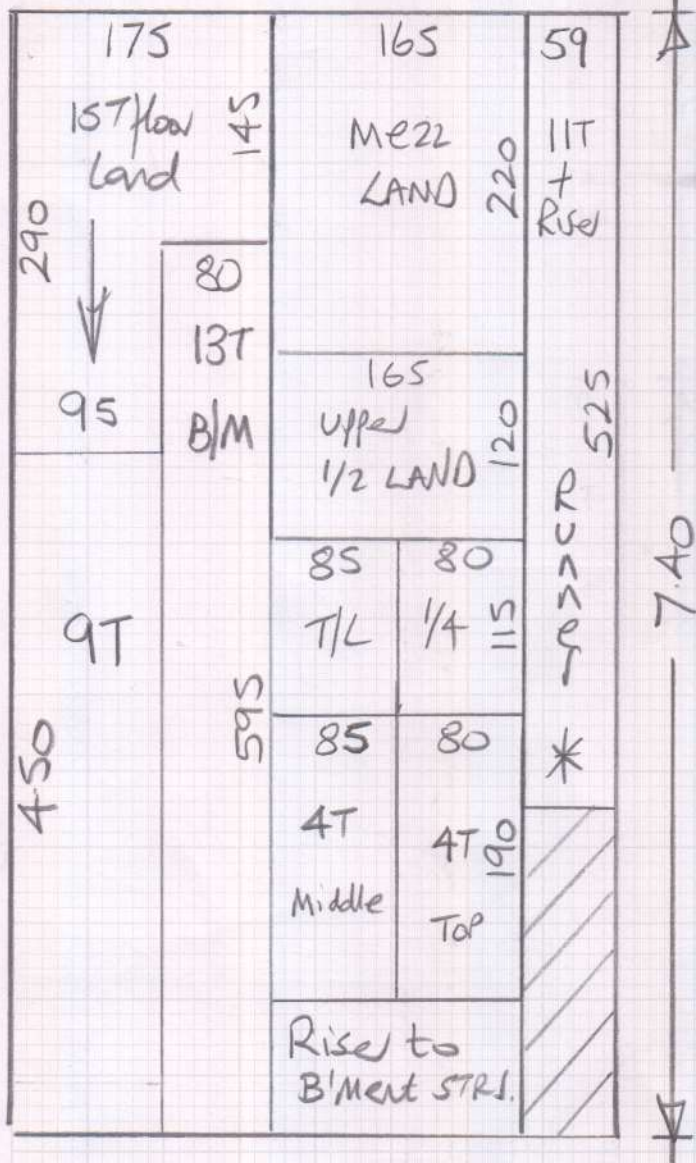 175
1ST floor
Land
145
290
95
80
13T
B/M
595
9T
450
165
Mezz
LAND
220
165
Upper
1/2 LAND
120
85
T/L
80
1/4
115
85
4T
Middle
80
4T
Top
190
Riser to
B'Ment STRS.
59
11T
+
Riser
525
*
7.40